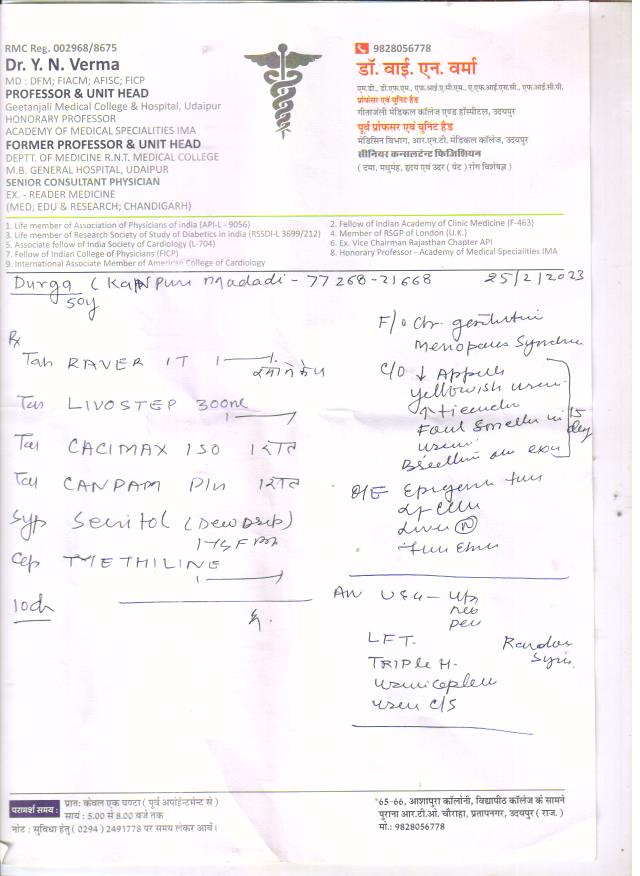 RMC Reg. 002968/8675
Dr. Y. N. Verma
MD : DFM; FIACM; AFISC; FICP
PROFESSOR & UNIT HEAD
Geetanjali Medical College & Hospital, Udaipur
HONORARY PROFESSOR
ACADEMY OF MEDICAL SPECIALITIES IMA
FORMER PROFESSOR & UNIT HEAD
DEPTT. OF MEDICINE R.N.T. MEDICAL COLLEGE
M.B. GENERAL HOSPITAL, UDAIPUR
SENIOR CONSULTANT PHYSICIAN
EX. - READER MEDICINE
(MED; EDU & RESEARCH; CHANDIGARH)
9828056778
डॉ. वाई. एन. वर्मा
एम.डी., डी.एफ.एम., एफ.आई.ए.सी.एम., ए.एफ.आई.एस.सी., एफ.आई.सी.पी.
प्रोफेसर एवं यूनिट हैड
गीतांजली मेडिकल कॉलेज एण्ड हॉस्पीटल, उदयपुर
पूर्व प्रोफेसर एवं युनिट हैड
मेडिसिन विभाग, आर.एन.टी. मेडिकल कॉलेज, उदयपुर
सीनियर कन्सलटेन्ट फिजिशियन
( दमा, मधुमेह, हृदय एवं उदर ( पेट ) रोग विशेषज्ञ )
1. Life member of Association of Physicians of india (API-L - 9056)
2. Fellow of Indian Academy of Clinic Medicine (F-463)
3. Life member of Research Society of Study of Diabetics in india (RSSDI-L 3699/212)
4. Member of RSGP of London (U.K.)
5. Associate fellow of India Society of Cardiology (L-704)
6. Ex. Vice Chairman Rajasthan Chapter API
7. Fellow of Indian College of Physicians (FICP)
8. Honorary Professor - Academy of Medical Specialities IMA
9. International Associate Member of American College of Cardiology
Durga ( Kanpur Madadi - 77268-21668 25/2/2023
50y
Rx
Tab RAVER IT 1
Tab LIVOSTEP 300
1
Tab CACIMAX ISO 1 रात
Tab CANPAM Pln 1 रात
Syp Senitol (
Cap TMETHILINE
1
10d
F/o Ch.
Menopause Syndrome
C/O ↓
yellowish urine
Foul Smell in
urine
15 day
O/E
Liver N
USG - Up
LFT.
TRIPLE H.
Random
urine C/S
परामर्श समय :
प्रात: केवल एक घण्टा ( पूर्व अपोईन्टमेन्ट से )
सायं : 5.00 से 8.00 बजे तक
नोट : सुविधा हेतु ( 0294 ) 2491778 पर समय लेकर आवें।
65-66, आशापुरा कॉलोनी, विद्यापीठ कॉलेज के सामने
पुराना आर.टी.ओ. चौराहा, प्रतापनगर, उदयपुर ( राज. )
मो.: 9828056778